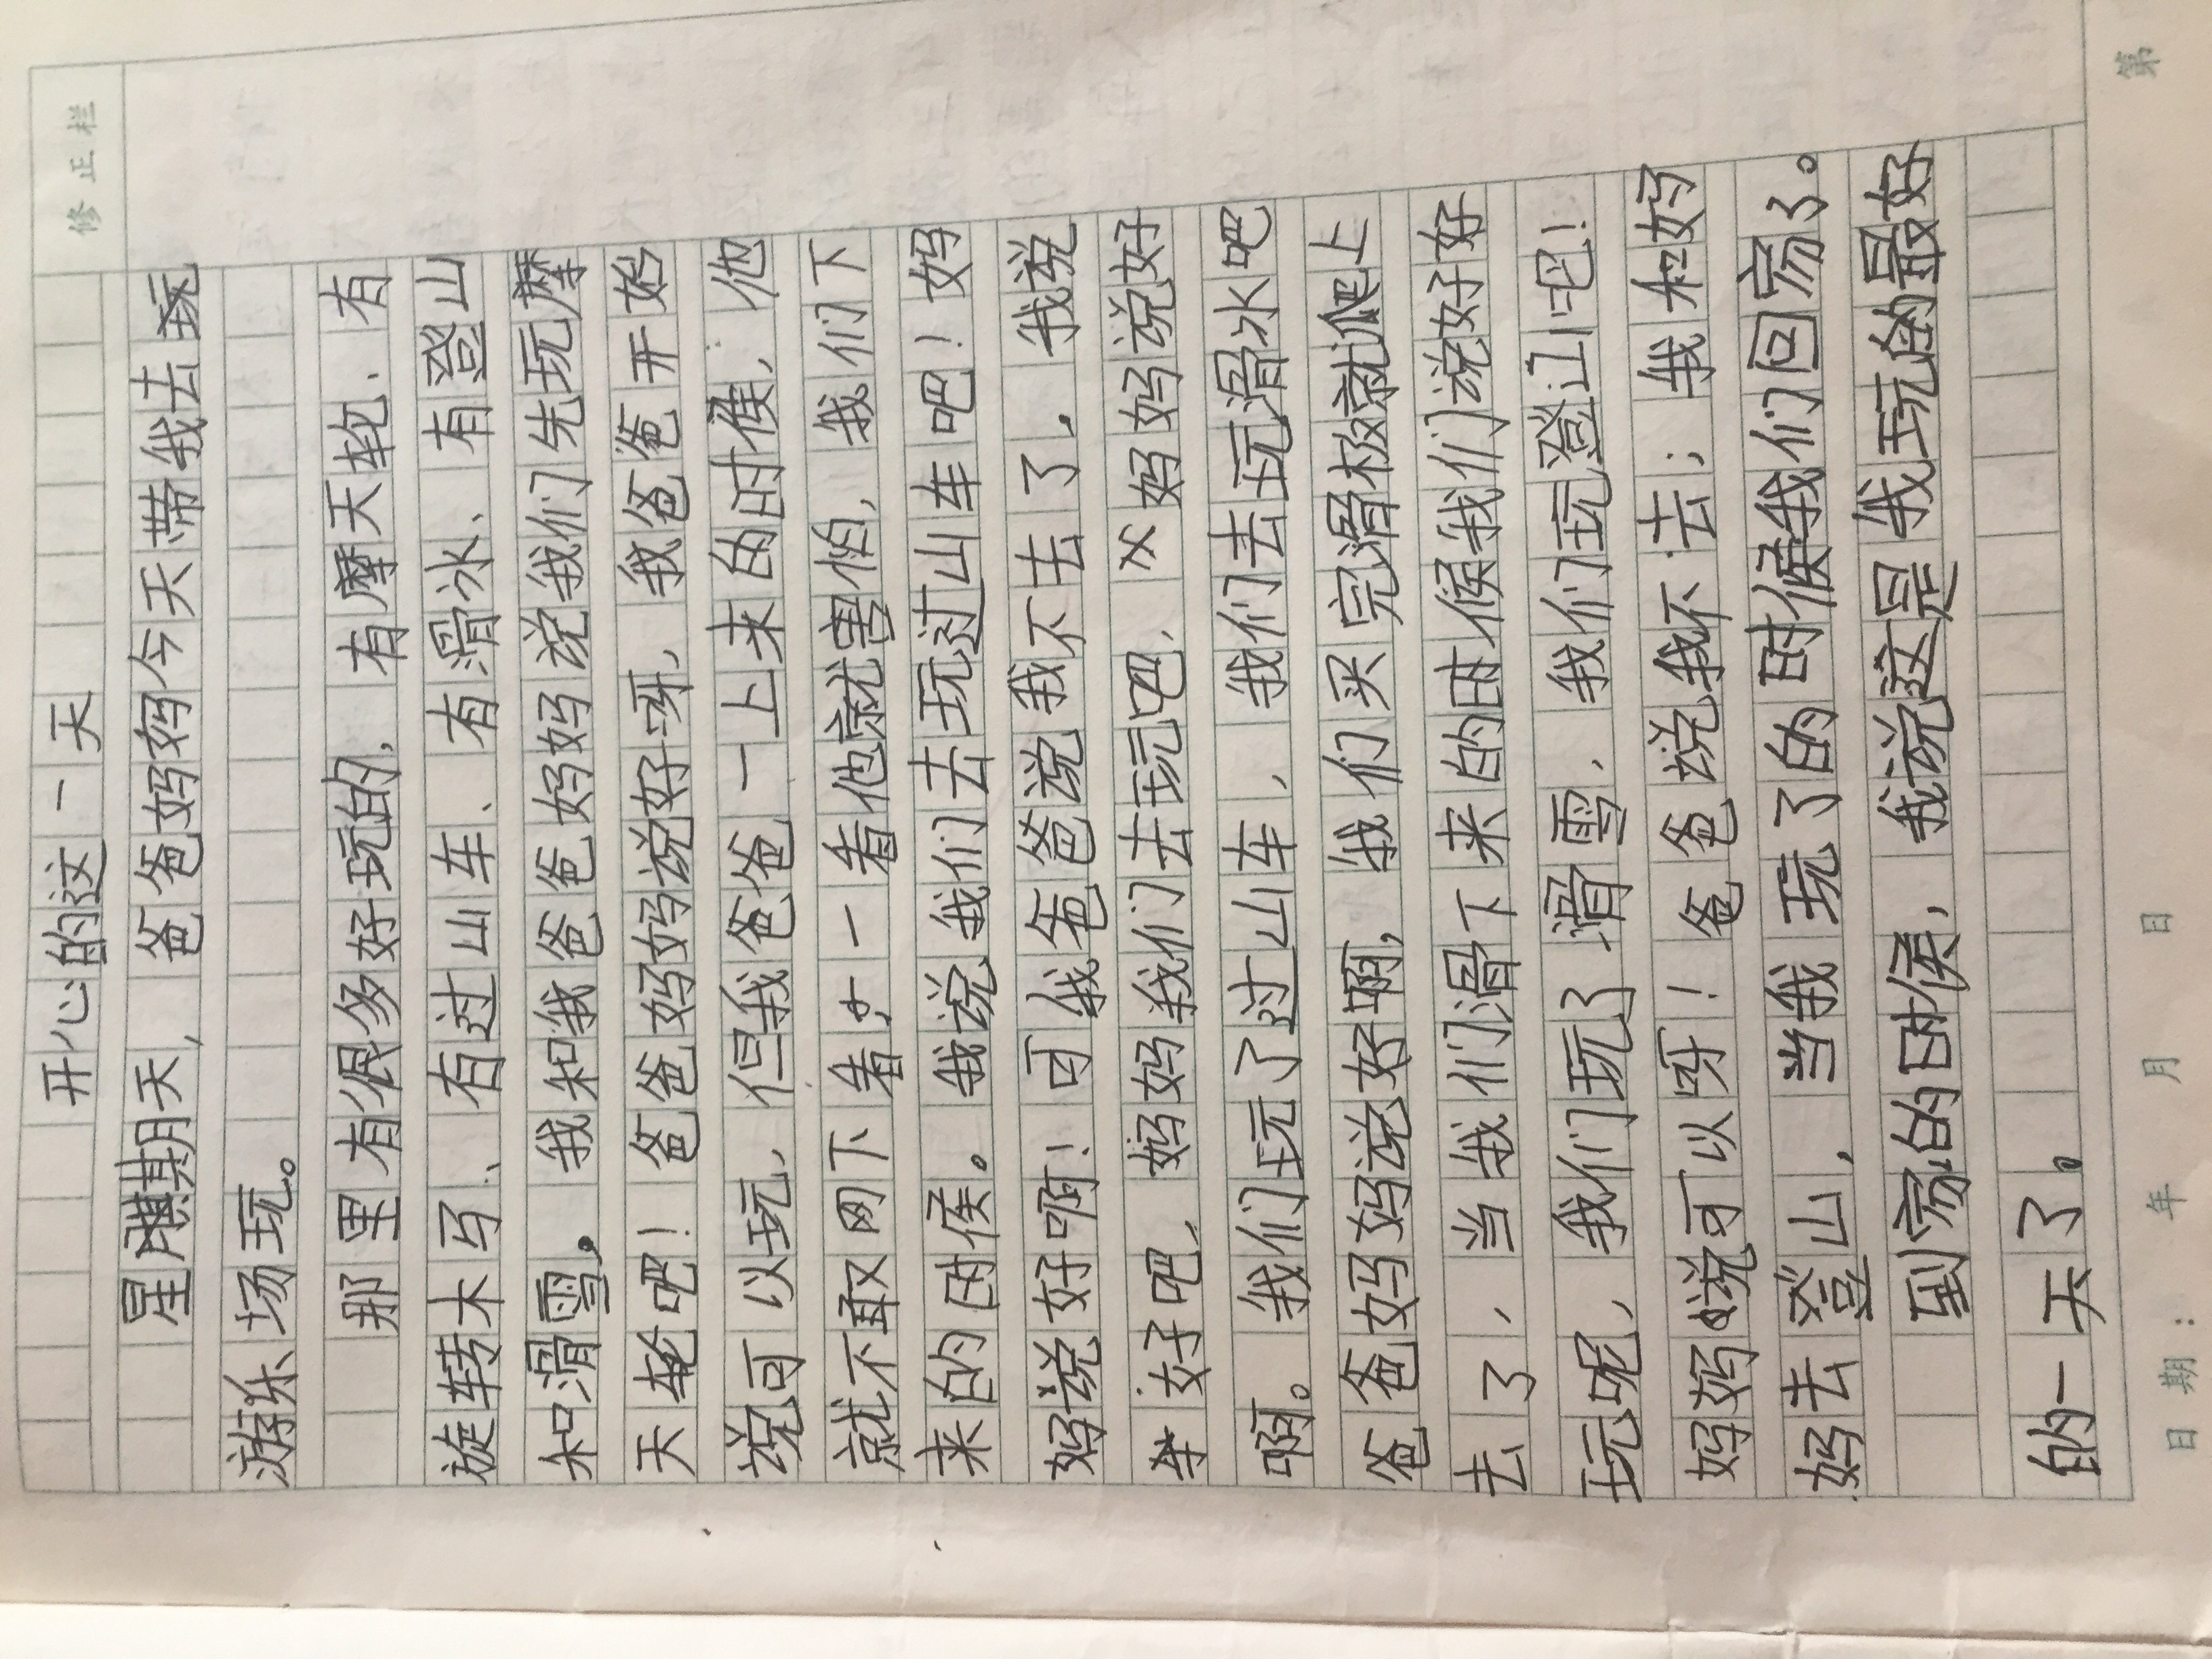 修正栏
开心的这一天
星期天，爸爸妈妈今天带我去玩
游乐场玩。
那里有很多好玩的，有摩天轮、有
旋转木马、有过山车、有滑冰、有登山
和滑雪。我和我爸爸妈妈说我们先玩摩
天轮吧！爸爸妈妈说好呀，我爸爸开始
说可以玩，但我爸爸一上来的时候，他
就不敢网下看，一看他就害怕，我们下
来的时侯。我说我们去玩过山车吧！妈
妈说好啊！可我爸爸说我不去了，我说
好吧，妈妈我们去玩吧，妈妈说好
啊。我们玩了过山车，我们去玩滑水吧
爸爸妈妈说好啊，我们买完滑极就爬上
去了，当我们滑下来的时候我们说好好
玩呢，我们玩了滑雪，我们玩登山吧！
妈妈说可以呀！爸爸说我不去；我和妈
妈去登山，当我玩了的时候我们回家了。
到家的时侯，我说这是我玩的最好
的一天了。
日期： 年 月 日 第